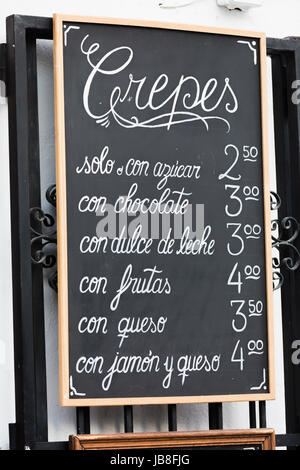 Crepes
solo o con azúcar 2.50
con chocolate 3.00
con dulce de leche 3.00
con frutas 4.00
con queso 3.50
con jamón y queso 4.00
alamy
Image ID: JB8FJG
www.alamy.com